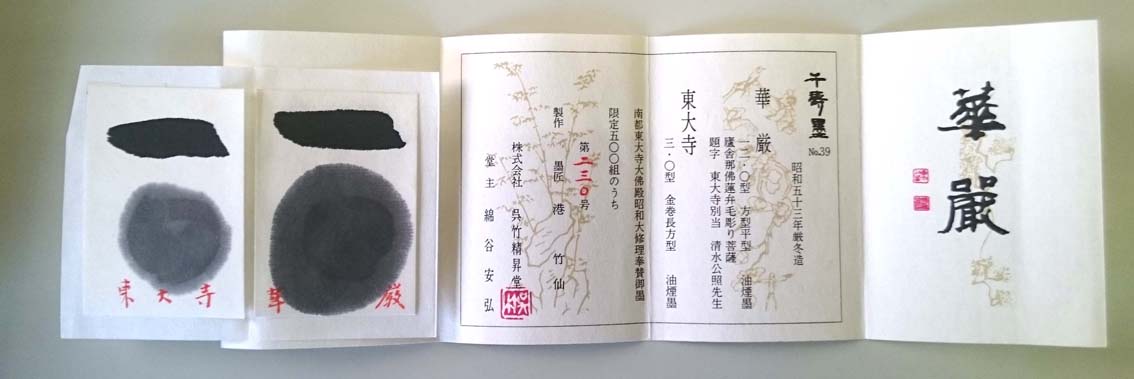 華嚴
千寿墨
No.39
昭和五十三年厳冬造
華厳
一二・〇型 方型平型 油煙墨
廬舎那佛蓮弁毛彫り菩薩
題字 東大寺別当 清水公照先生
東大寺
三・〇型 金巻長方型 油煙墨
南都東大寺大佛殿昭和大修理奉賛御墨
限定五〇〇組のうち
第二三〇号
製作 墨匠 港竹仙
株式会社 呉竹精昇堂
堂主 綿谷安弘
華厳
東大寺